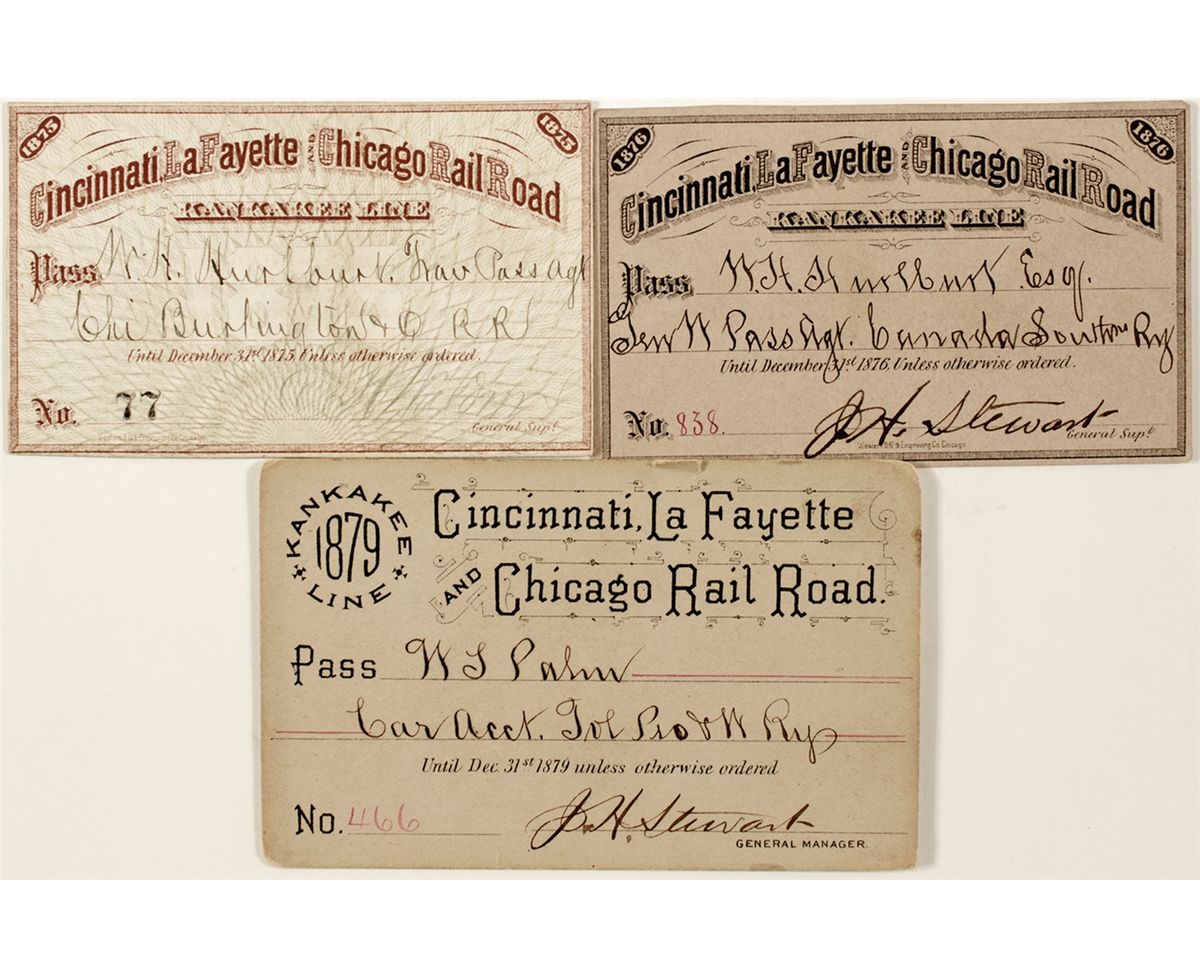 1875 1875
Cincinnati, LaFayette AND Chicago Rail Road
KANKAKEE LINE
Pass W. H. Hurlburt. Trav Pass Agt
Chi Burlington & Q R R
Until December 31st 1875. Unless otherwise ordered.
No. 77
General Supt.
1876 1876
Cincinnati, LaFayette AND Chicago Rail Road
KANKAKEE LINE
Pass W. H. Hurlburt Esq.
Gen W Pass Agt. Canada Southn Ry
Until December 31st 1876. Unless otherwise ordered.
No. 838. J. H. Stewart
General Supt.
Western B.N. & Engraving Co. Chicago.
KANKAKEE
1879
LINE
Cincinnati, La Fayette
AND Chicago Rail Road.
Pass W S Palm
Car Acct. Tol Peo & W Ry
Until Dec. 31st 1879 unless otherwise ordered
No. 466 J. H. Stewart
GENERAL MANAGER.